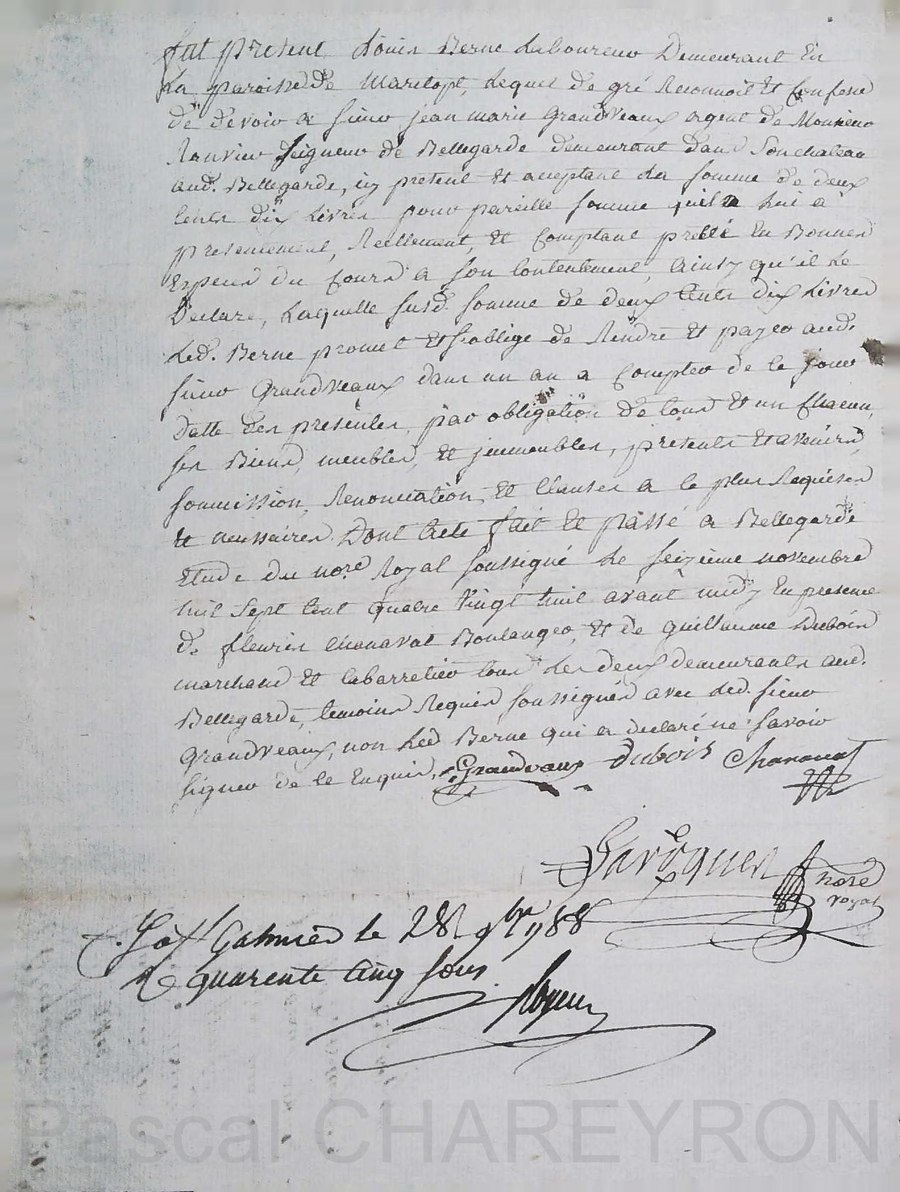 fut present Louis Berne Laboureur Demeurant En
La paroisse de Marclopt, Lequel de gré Reconnoit et Confesse
de devoir a sieur jean marie Grandveaux agent de Monsieur
Ranvier Seigneur de Bellegarde demeurant dans Son chateau
aud. Bellegarde, icy present et acceptant La somme de deux
Cents dix Livres pour pareille somme quil a Lui a
presentement, Reellement, et Comptant presté En Bonnes
Especes du Cours a son Contentement, Ainsy qu'il Le
Declare, Laquelle susd. somme de deux Cents dix Livres
Led. Berne promet et soblige de Rendre et payer aud.
sieur Grandveaux dans un an a Compter de ce jour
datte des presentes, par obligation de tous et un Chacun,
ses Biens, meubles, et jmmeubles, presents et avenirs,
soumission, Renonciation, et Clauses a ce plus Requises
et necessaires Dont Acte fait et passé a Bellegarde
Etude du nore Royal soussigné Le seizième novembre
mil sept Cent quatre vingt huit avant midy En presence
de fleuris Chanavat Boulanger, et de Guillaume Dubois
marchand et Cabarretier tous Les deux demeurants aud.
Bellegarde, temoins Requis soussignés avec Led. sieur
Grandveaux, non Led Berne qui a declaré ne savoir
signer de ce Enquis. Grandvaux Dubois Chanavat
nore
royal
a St Galmier le 28 9bre 1788
R quarente cinq sous
Pascal CHAREYRON